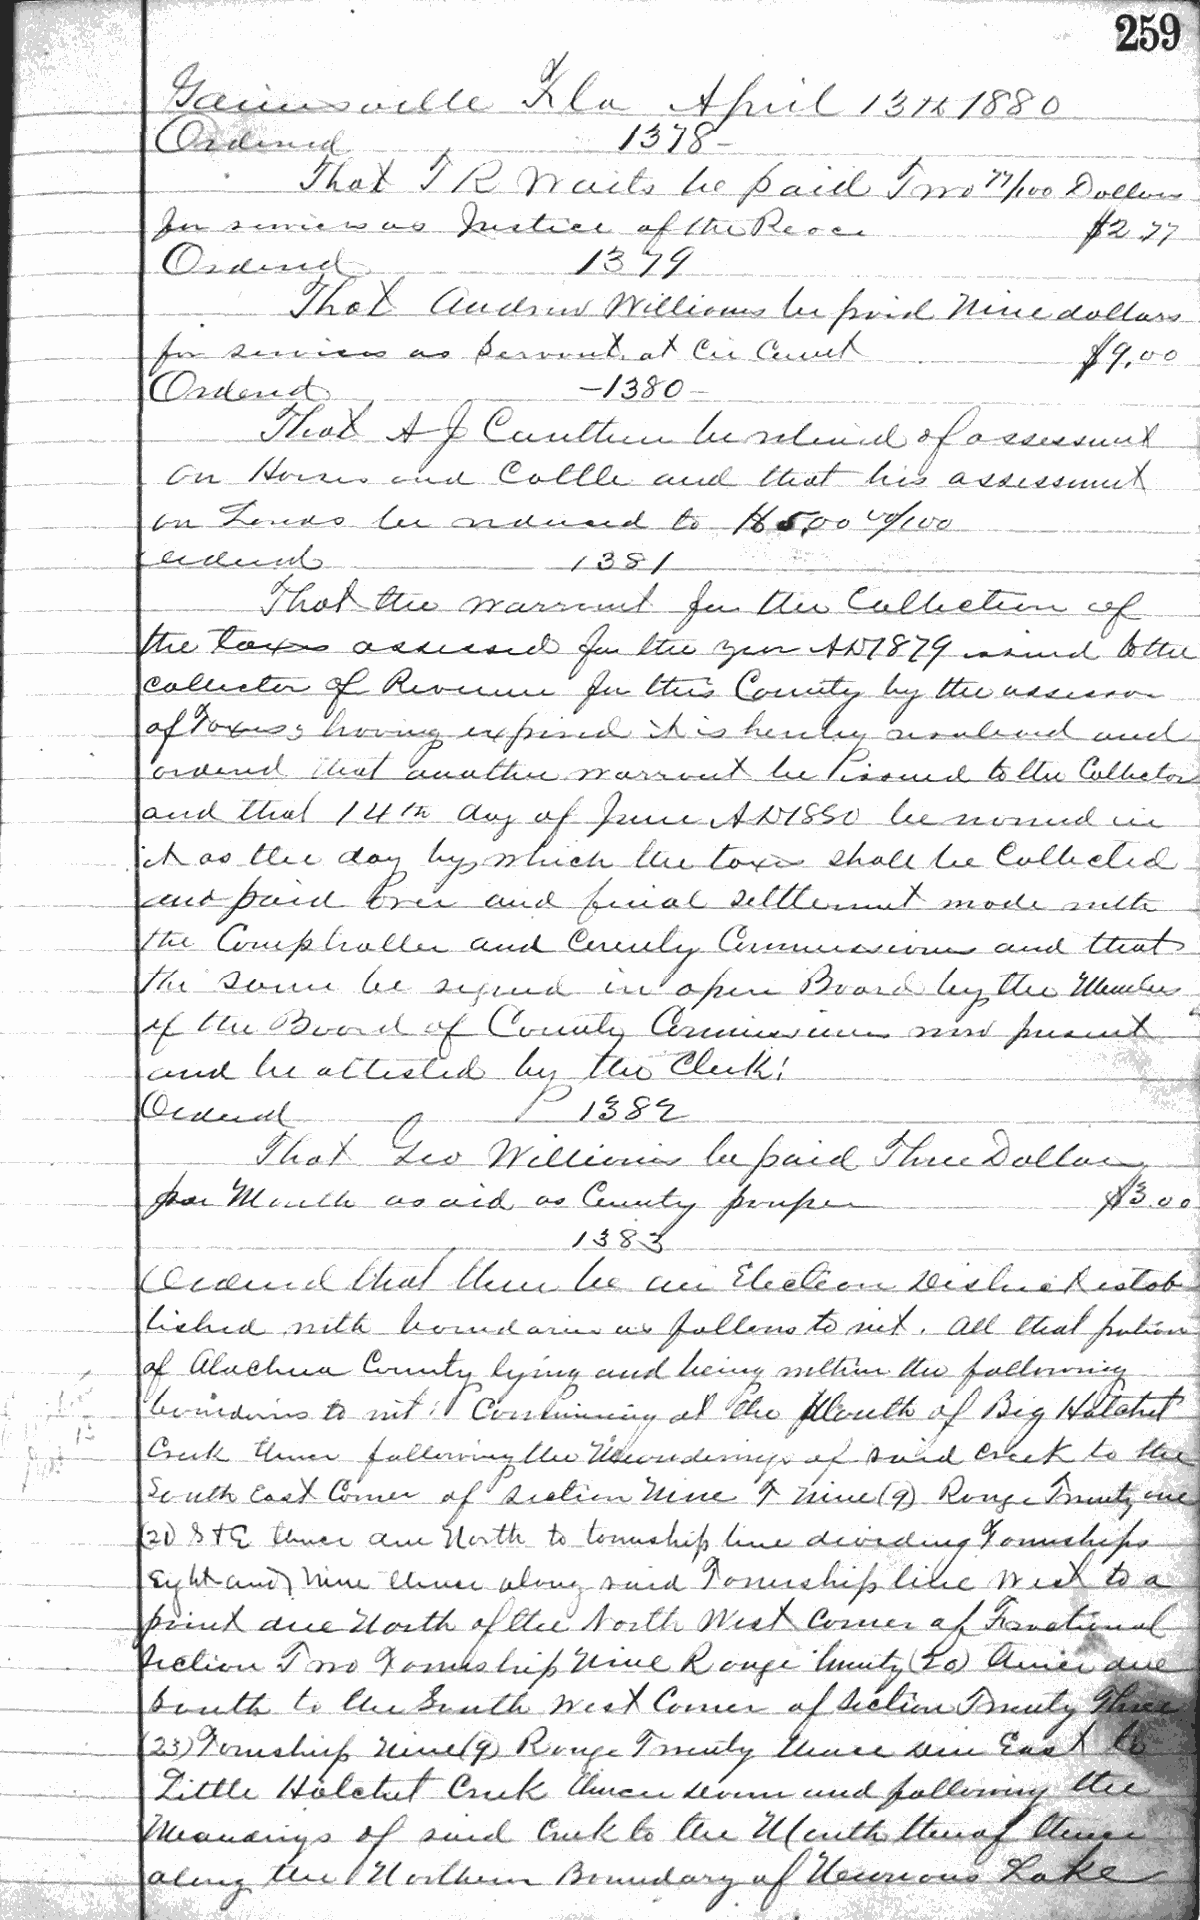 259
Gainsville Fla April 13th 1880
Ordered 1378-
That T R Waits be paid Two 77/100 Dollars
for services as Justice of the Peace $2.77
Ordered 1379
That Andrew Williams be paid Nine dollars
for services as Servant at Cir Court $9.00
Ordered -1380-
That A J be relieved of assessment
on Horses and Cattle and that his assessment
on Lands be reduced to 00/100
Ordered 1381
That the warrant for the Collection of
the taxes assessed for the year AD1879 issued to the
collector of Revenue for this County by the assessor
of Taxes, having expired it is hereby resolved and
ordered that another warrant be issued to the Collector
and that 14th day of June AD1880 be named in
it as the day by which the taxes shall be Collected
and paid over and final settlement made with
the Comptroller and County Commissioners and that
the same be signed in open Board by the Members
of the Board of County Commissioners now present
and be attested by the Clerk.
Ordered 1382
That Geo Williams be paid Three Dollars
per Month as aid as County pauper $3.00
1383
Ordered that there be an Election District estab
lished with boundaries as follows to wit. All that portion
of Alachua County lying and being within the following
boundaries to wit: at the Mouth of Big Hatchet
Creek thence following the Meanderings of said creek to the
South East Corner of Section Nine T Nine (9) Range Twenty one
(21) S & E thence due North to township line dividing Townships
Eight and Nine thence along said Township line West to a
point due North of the North West Corner of Fractional
Section Two Township Nine Range Twenty (20) thence due
South to the South West Corner of Section Twenty Three
(23) Township Nine (9) Range Twenty thence due East to
Little Hatchet Creek thence down and following the
Meandrings of said Creek to the Mouth thereof thence
along the Northern Boundary of Newnons Lake